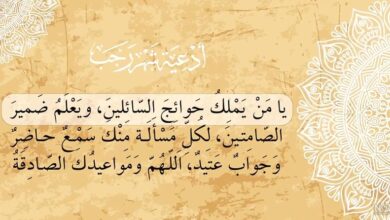 أدعية شهر رجب
يا مَنْ يَمْلِكُ حَوائِجَ السّائِلينَ، ويَعْلَمُ ضَميرَ
الصّامتينَ، لِكُلِّ مَسْأَلَة مِنْكَ سَمْعٌ حاضِرٌ
وَجَوابٌ عَتيدٌ، اَللّهُمَّ وَمَواعيدُكَ الصّادِقَةُ